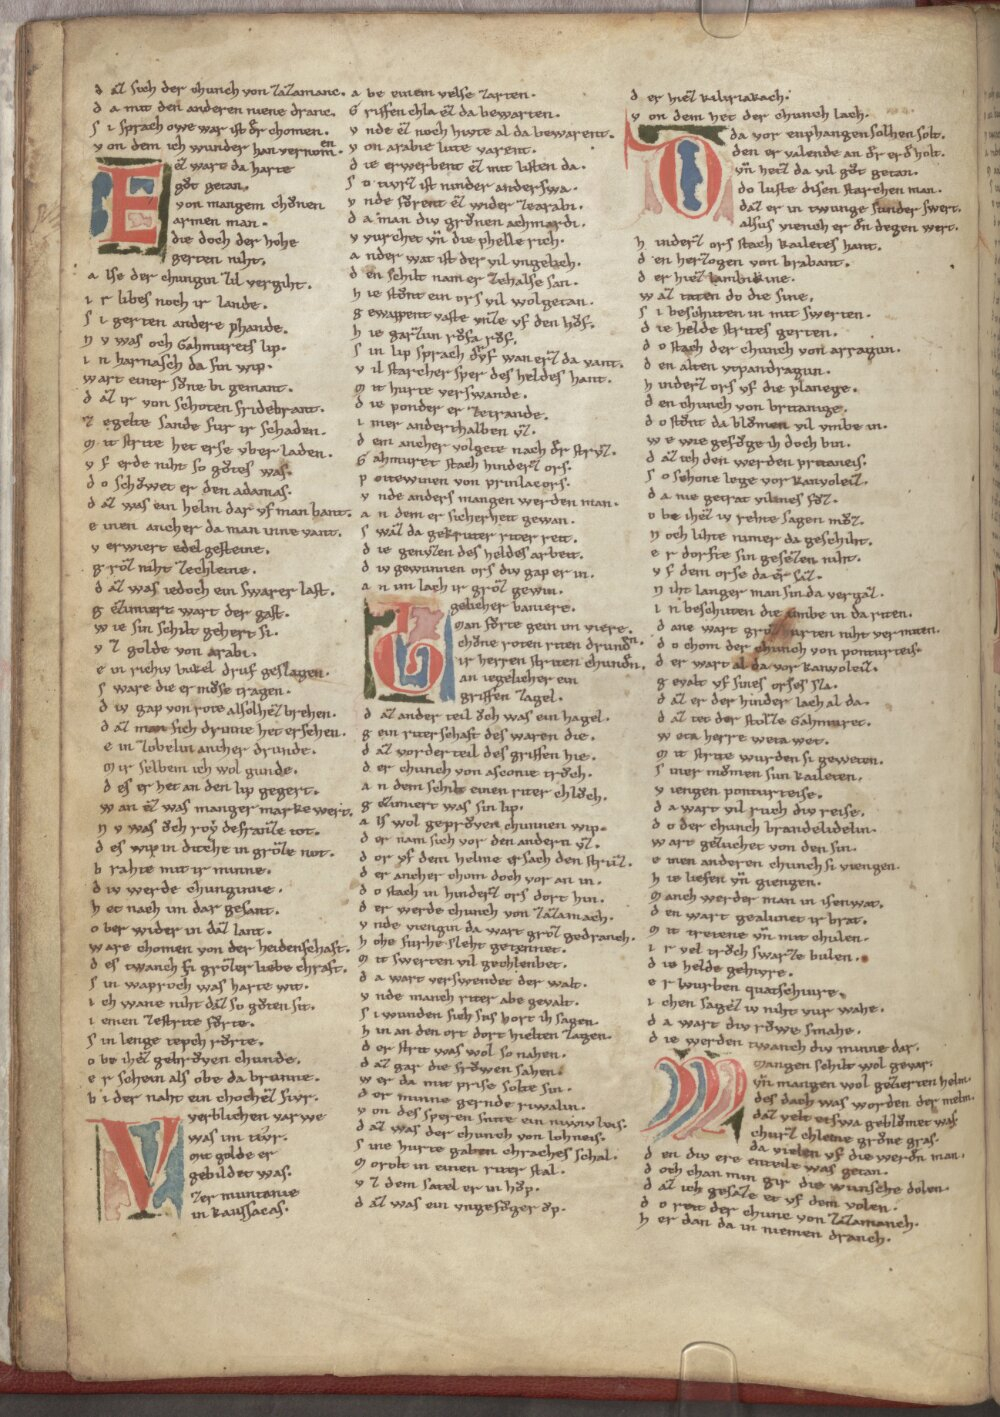 d aʒ sich der chunch von Zazamanc.
d a mit den anderen niene dranc.
s i sprach owe war ist d᷑ chomen.
v on dem ich wunder han vernomen.
E ʒ wart da harte
gͦt getan.
von mangem chͦnen
armen man.
die doch der hohe
gerten niht.
a lse der chungin zil vergiht.
i r libes noch ir lande.
s i gerten andere phande.
n v was och Gahmurets lip.
i n harnasch da sin wip.
wart einer sͦne bi gemant.
d aʒ ir von schoten fridebrant.
z egebte sande fur ir schaden.
m it strite het erse vberladen.
v f erde niht so gͦtes was.
d o schͦwet er den adamas.
d aʒ was ein helm dar vf man bant.
e inen ancher da man inne vant.
v erwiert edel gesteine.
g roʒ niht zechleine.
d aʒ was iedoch ein swarer last.
g eʒimiert wart der gast.
w ie sin schilt gehert si.
v ʒ golde von arabi.
e in richiv bukel druf geslagen.
s ware die er mͦse tragen.
d iv gap von rote alsolheʒ brehen.
d aʒ man sich drinne het ersehen.
e in zobelin ancher drunde.
m ir selbem ich wol gunde.
d es er het an den lip gegert.
w an eʒ was manger marke wert.
n v was ͦch roẏ defranʒe tot.
d es wip in ditche in groʒe not.
b rahte mit ir minne.
d iv werde chunginne.
h et nach im dar gesant.
o ber wider in daʒ lant.
w are chomen von der heidenschaft.
d es twanch si groʒer liebe chraft.
s in waproch was harte wit.
i ch wane niht daʒ so gͦten sit.
i emen zestrite fͦrte.
s in lenge tepch rͦrte.
o be iheʒ gebrͦven chunde.
e r schein als obe da brunne.
b i der naht ein chocheʒ fivr.
V erblichen varwe
was im tiwr.
mit golde er
gebildet was.
zer muntanie
in kaussacas.
a be einem velse zarten.
G riffen chla eʒ da bewarten.
v nde eʒ noch hivte al da bewarent.
v on arabie lute varent.
d ie erwerbent eʒ mit listen da.
s o tiwrʒ ist ninder anderswa.
v nde fͦrent eʒ wider zearabi.
d a man div grͦnen achmardi.
v vurchet vn̄ die phelle rich.
a nder wat ist der vil vngelich.
d en schilt nam er zehalse san.
h ie stͦnt ein ors vil wolgetan.
g ewappent vaste vnʒe vf den hͦf.
h ie garzun rͦfa rͦf.
s in lip sprach drvf wan erʒ da vant.
v il starcher sper des heldes hant.
m it hurte verswande.
d ie ponder er zetrande.
i mer anderthalben vʒ.
d em ancher volgete nach d᷑ strvʒ.
G ahmuret stach hinderʒ ors.
p oitewinen von prinlacors.
v nde anders mangen werden man.
a n dem er sicherheit gewan.
s waʒ da gekruter riter reit.
d ie genvʒen des heldes arbeit.
d iv gewunnen ors div gap er in.
a n im lach ir groʒ gewin.
G elicher baniere.
man fͦrte gein im viere.
chͦne roten riten drund᷑n.
ir herren striten chund᷑n.
an iegelicher ein
griffen zagel.
d aʒ ander teil ͦch was ein hagel.
g ein riterschaft des waren die.
d aʒ vorder teil des griffen hie.
d er chunch von asconie trͦch.
a n dem schilt einen riter chlͦch.
g eʒimiert was sin lip.
a ls wol geprͦven chunnen wip.
d er nam sich vor den andern vʒ.
d or vf dem helme ersach den struʒ.
d er ancher chom doch vor an in.
d o stach in hinderʒ ors dort hin.
d er werde chunch von Zazamach.
v nde viengin da wart groʒ gedranch.
h ohe furhe sleht getennet.
m it swerten vil gechlenbet.
d a wart verswendet der walt.
v nde manch riter abe gevalt.
s i wunden sich sus hort ih sagen.
h in an den ort dort hielten zagen.
d er strit was wol so nahen.
d aʒ gar die frͦwen sahen.
w er da mit prise solte sin.
d er minne gernde riwalin.
v on des speren snite ein niwiv leis.
d aʒ was der chunch von lohneis.
s ine hurte gaben chraches schal.
m orolt in einen riter stal.
v ʒ dem satel er in hͦp.
d aʒ was ein vngefͦger ͦp.
d er hieʒ killiriakach.
v on dem het der chunch lach.
D a vor enphangen solhen solt.
den er valende an d᷑ erd᷑ holt.
vn̄ hetʒ da vil gͦt getan.
do luste disen starchen man.
daʒ er in twunge sunder swert.
alsus viench er d᷑n degen wert.
h inderʒ ors stach kailetes hant.
d en herʒogen von brabant.
d er hieʒ lambikine.
w aʒ taten do die sine.
s i beschuten in mit swerten.
d ie helde strites gerten.
d o stach der chunch von arragun.
d en alten vtpandragun.
h inderʒ ors vf die planege.
d en chunch von britanige.
d o stͦnt da blͦmen vil vmbe in.
w e wie gefͦge ih doch bin.
d aʒ ich den werden pritaneis.
s o schone lege vor kanvoleiʒ.
d a nie getrat vilanes fͦʒ.
o be iheʒ iv rehte sagen mͦʒ.
n och lihte nimer da geschiht.
e r dorfte sin geseʒen niht.
v f dem orse da er saʒ.
n iht langer man sin da vergaʒ.
i n beschuten die umbe in da riten.
d ane wart groʒ hurten niht vermiten.
d o chom der chunch von ponturteis.
d er wart al da vor kanvoleiʒ.
g evalt vf sines orses sla.
d aʒ er der hinder lach al da.
d aʒ tet der stolʒe Gahmuret.
w eta herre weta wet.
m it strite wurden si geweten.
s iner mͦmen sun kaileten.
v iengen ponturteise.
d a wart vil ruch div reise.
d o der chunch brandelidelin.
w art geʒuchet von den sin.
e inen anderen chunch si viengen.
h ie liefen vn̄ giengen.
m anch werder man in isenwat.
d en wart gealunet ir brat.
m it tretene vn̄ mit chulen.
i r vel trͦch swarʒe bulen.
d ie helde gehivre.
e r wurben quatschiure.
i chen sageʒ iv niht vur wahe.
d a wart div rͦwe smahe.
d ie werden twanch div minne dar.
M angen schilt wol gevar.
vn̄ mangen wol geʒierten helm.
des dach was worden der melm.
daʒ velt etswa geblͦmet was.
churʒ chleine grͦne gras.
da vielen vf die werd᷑n man.
d en div ere enteile was getan.
d och chan min gir die wunsche dolen.
d aʒ ich gesaʒe et vf dem volen.
d o reit der chunc von Zazamanch.
h er dan da in niemen dranch.